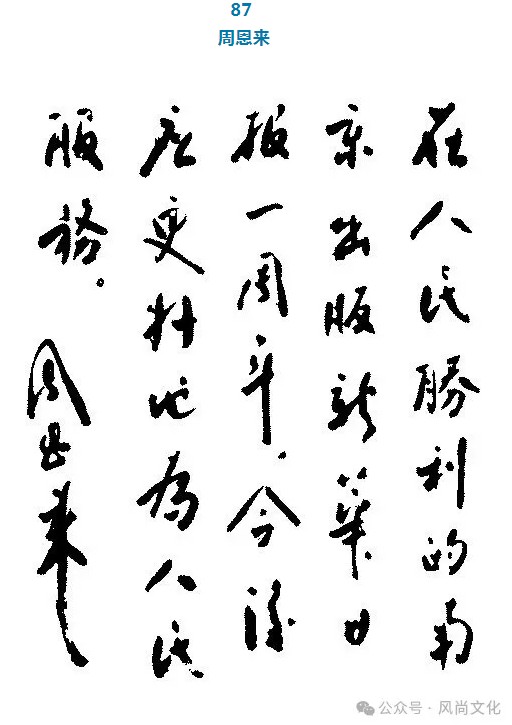 87
周恩来
在人民勝利的南
京出版新華日
报一周年.今後
应更好地為人民
服務。
周恩来
公众号·风尚文化